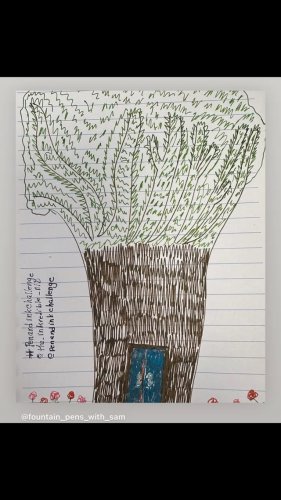 #Penandinkchallenge
@the_inkredible_nib
@penandinkchallenge
@fountain_pens_with_sam